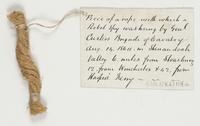 Piece of a rope with which a
Rebel Spy was hung by Genl
Custer's Brigade of Cavalry
Aug. 14. 1864. in Shenandoah
Valley 6. miles from Strasburg
12. from Winchester & 42. from
Harpers Ferry